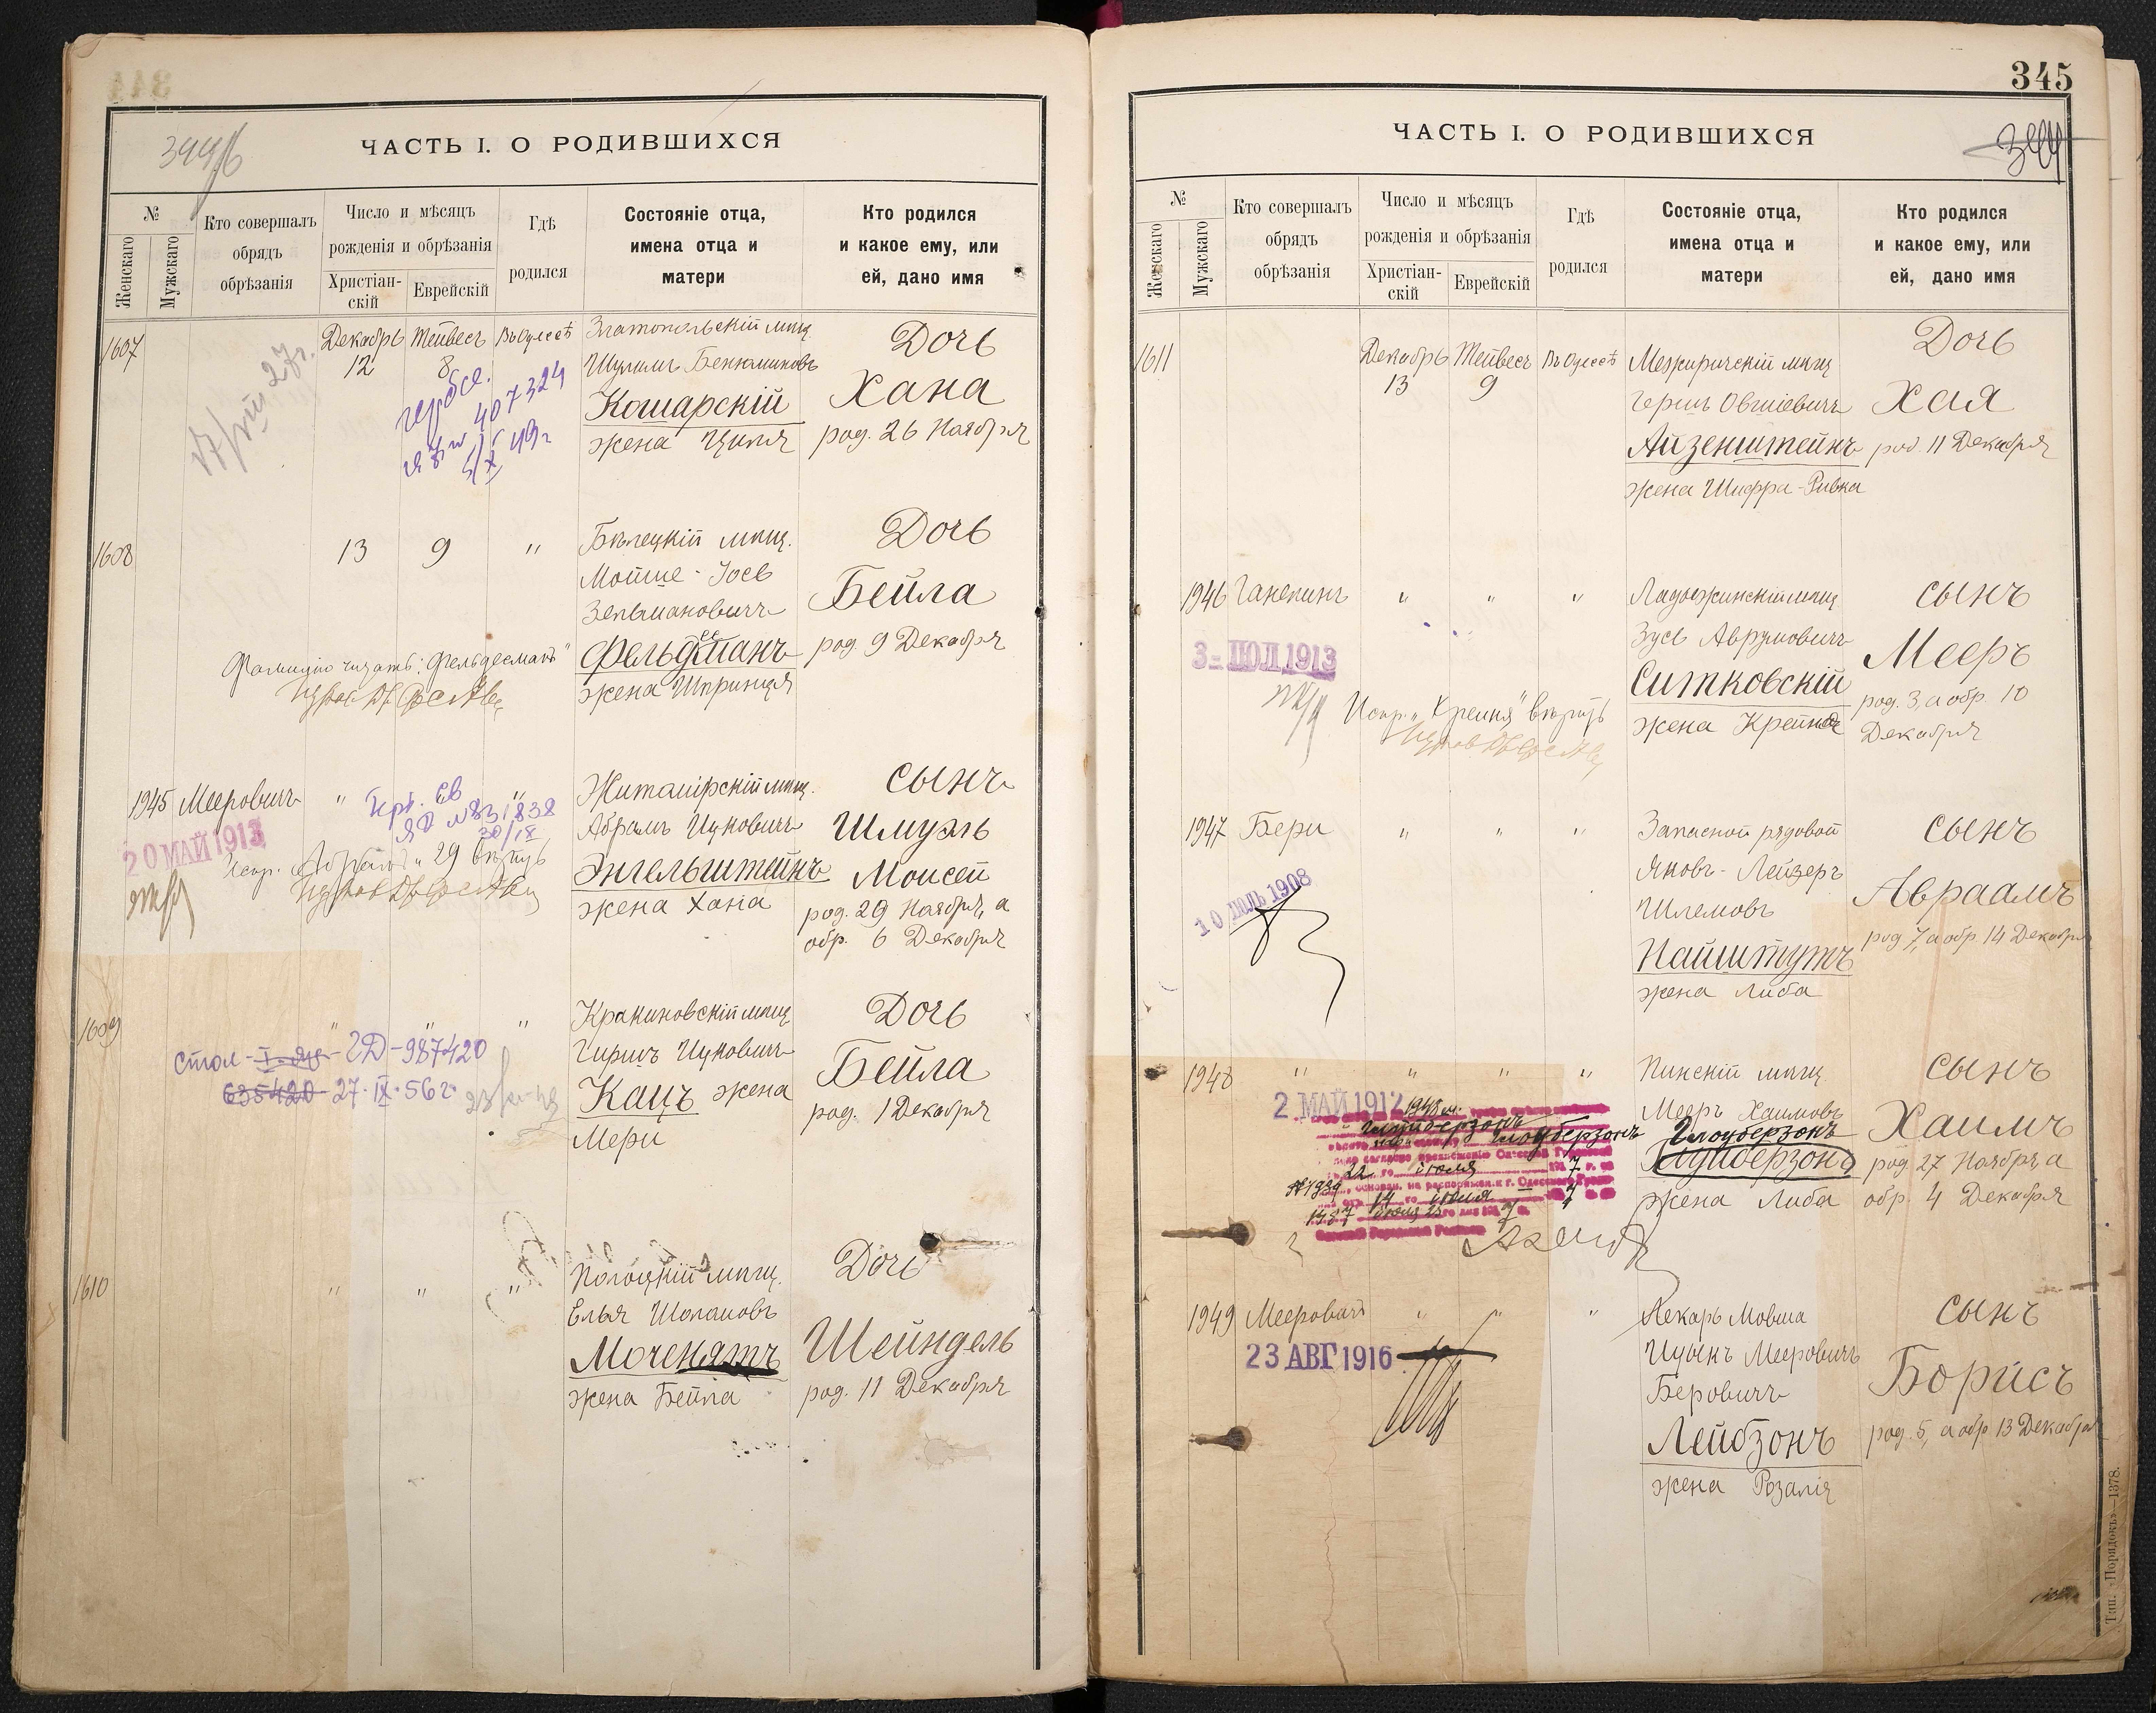 344
344 б
ЧАСТЬ I. О РОДИВШИХСЯ
№
Женскаго
Мужскаго
Кто совершалъ
обрядъ
обрѣзанія
Число и мѣсяцъ
рожденія и обрѣзанія
Христіан-
скій
Еврейскій
Гдѣ
родился
Состояніе отца,
имена отца и
матери
Кто родился
и какое ему, или
ей, дано имя
1607
Декабрь
12
Тейвесъ
8
Въ Одессѣ
407324
5/X 49г
Златопольскій мѣщ.
Шулимъ Бенюминовъ
Кошарскій
жена Ципя
Дочь
Хана
род. 26 Ноября
1608
13
9
"
Бѣлецкій мѣщ.
Мойше-Іось
Зельмановичъ
Фельдманъ
жена Шпринця
Дочь
Бейла
род. 9 Декабря
Фамилію читать: "Фельдесманъ"
1945
Мееровичъ
"
"
20 МАЙ 1913
ЯР №831838
30/IX
Испр. "Абрамъ" 29 вѣрить
Житомірскій мѣщ.
Абрамъ Ицковичъ
Энгельштейнъ
жена Хана
сынъ
Шмуэль
Моисей
род. 29 Ноября, а
обр. 6 Декабря
1609
"
"
"
стол-I-яр-2Д-987420
635420-27·IX·56г.
Кракиновскій мѣщ.
Гиршъ Ицковичъ
Кацъ жена
Мери
Дочь
Бейла
род. 1 Декабря
1610
"
"
"
Полоцкій мѣщ.
Елья Шоломовъ
Моченятъ
жена Бейла
Дочь
Шейндель
род. 11 Декабря
345
344
ЧАСТЬ I. О РОДИВШИХСЯ
№
Женскаго
Мужскаго
Кто совершалъ
обрядъ
обрѣзанія
Число и мѣсяцъ
рожденія и обрѣзанія
Христіан-
скій
Еврейскій
Гдѣ
родился
Состояніе отца,
имена отца и
матери
Кто родился
и какое ему, или
ей, дано имя
1611
Декабрь
13
Тейвесъ
9
Въ Одессѣ
Межиричскій мѣщ.
Герш Овшіевичъ
Айзенштейнъ
жена Шифра-Ривка
Дочь
Хая
род. 11 Декабря
1946
Ганепинъ
"
"
"
3 - ІЮЛ 1913
Испр. "Крейня" вѣрить
Ладыжинскій мѣщ.
Зусь Аврумовичъ
Ситковскій
жена Крейня
сынъ
Мееръ
род. 3, а обр. 10
Декабря
1947
Бери
"
"
"
10 ІЮЛЬ 1908
Запасной рядовой
Яковъ-Лейзеръ
Шлемовъ
Найштутъ
жена Либа
сынъ
Авраамъ
род. 7, а обр. 14 Декабря
1948
"
"
"
"
2 МАЙ 1912
1948 м.
Глоуберзонъ
22
іюля
7
№1989
14
іюня
7
Пинскій мѣщ.
Мееръ Хаимовъ
Глоуберзонъ
жена Либа
сынъ
Хаимъ
род. 27 Ноября, а
обр. 4 Декабря
1949
Мееровичъ
"
"
"
23 АВГ 1916
Лекарь Мовша
Ицыкъ Мееровичъ
Беровичъ
Лейбзонъ
жена Розалія
сынъ
Борисъ
род. 5, а обр. 13 Декабря
Тип. «Порядокъ»—1378.